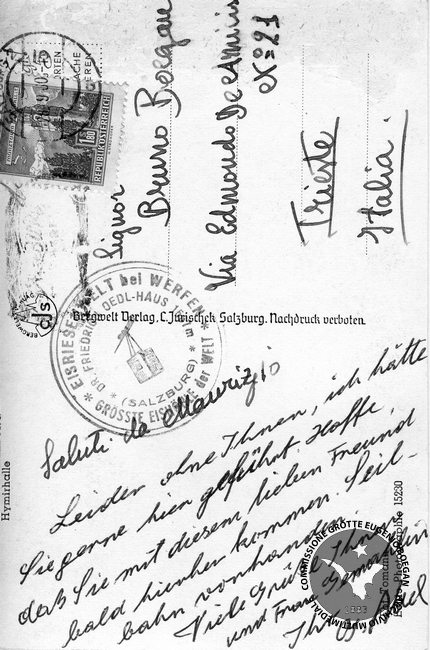 Signor
Bruno Boegan
Via Edmondo De Amicis
No 21
Trieste
Italia.
1.80
REPUBLIK ÖSTERREICH
Bergwelt Verlag, C. Jurischek Salzburg. Nachdruck verboten.
cjs
* EISRIESENWELT bei WERFEN *
DR. FRIEDRICH OEDL-HAUS
(SALZBURG)
GRÖSSTE EISHÖHLE der WELT
Hymirhalle
15230
Saluti da Maurizio
Leider ohne Ihnen, ich hätte
Sie gerne hier geführt. Hoffe,
daß Sie mit diesem lieben Freund
bald hierher kommen. Seil-
bahn vorhanden.
Viele Grüße Ihnen
und Frau Gemahlin
Ihr
COMMISSIONE GROTTE EUGENIO BOEGAN
ARCHIVIO MULTIMEDIALE